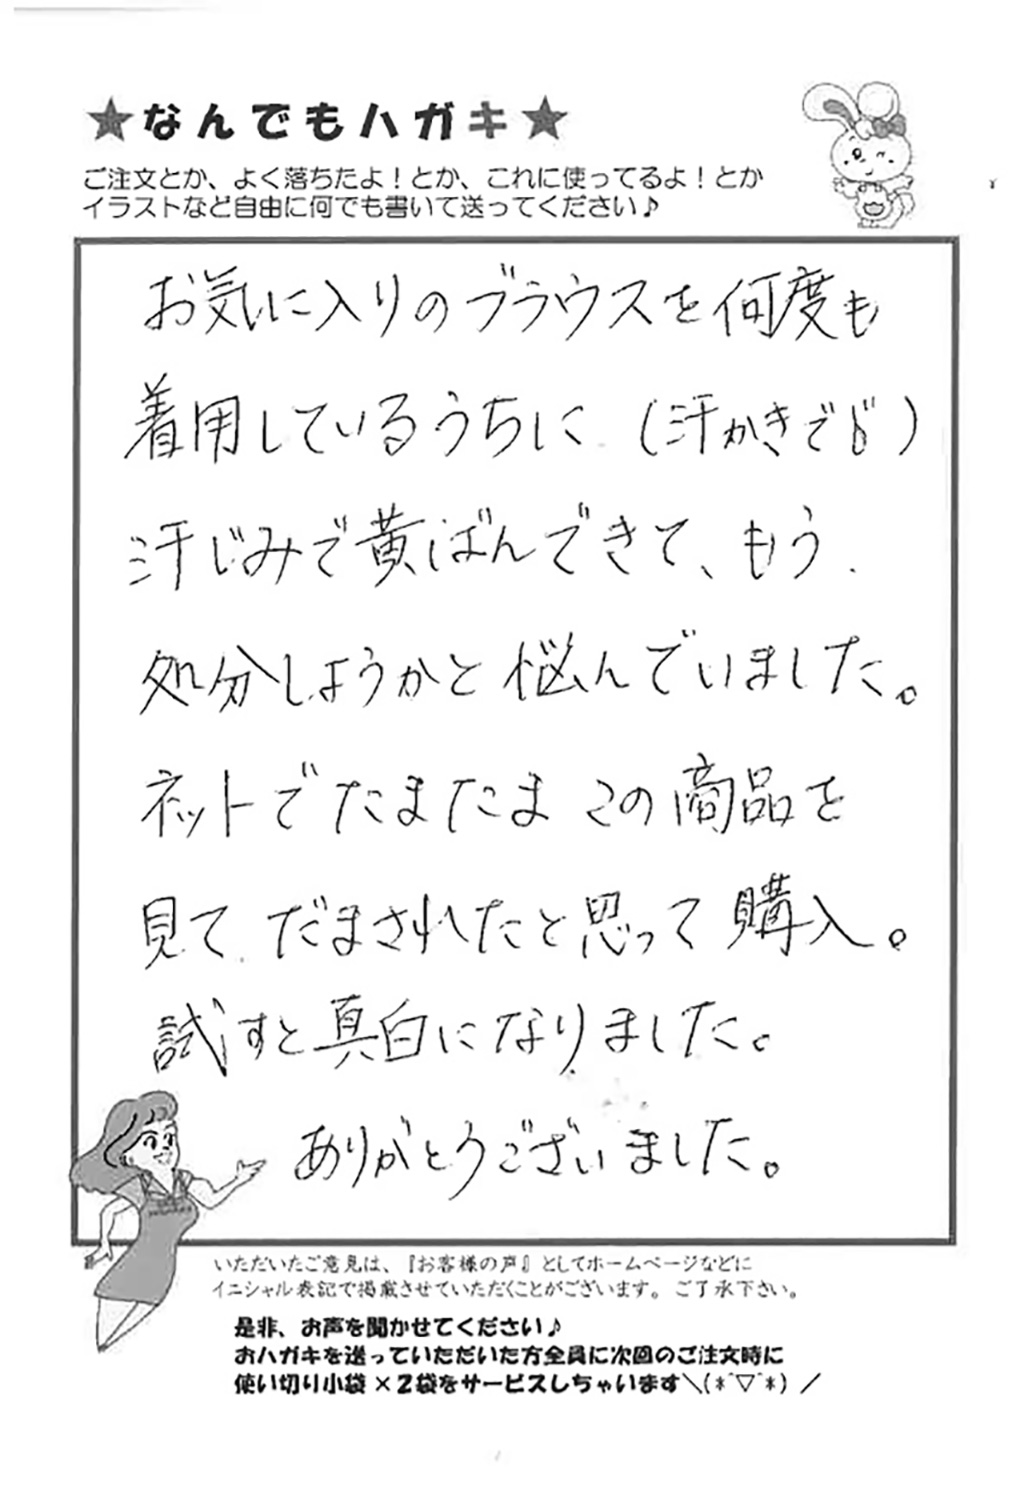 ★なんでもハガキ★
ご注文とか、よく落ちたよ！とか、これに使ってるよ！とか
イラストなど自由に何でも書いて送ってください♪
お気に入りのブラウスを何度も
着用しているうちに（汗かきで）
汗じみで黄ばんできて、もう
処分しようかと悩んでいました。
ネットでたまたまこの商品を
見てだまされたと思って購入。
試すと真白になりました。
ありがとうございました。
いただいたご意見は、『お客様の声』としてホームページなどに
イニシャル表記で掲載させていただくことがございます。ご了承下さい。
是非、お声を聞かせてください♪
おハガキを送っていただいた方全員に次回のご注文時に
使い切り小袋×２袋をサービスしちゃいます＼(*´▽`*)／